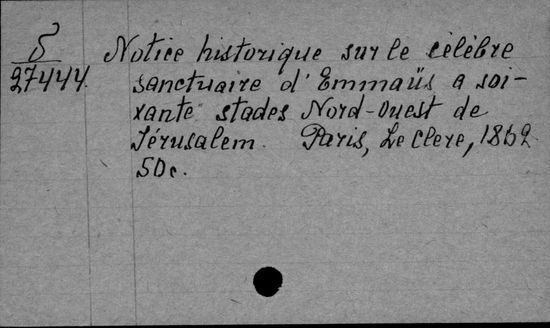 δ Notice historique sur le célèbre
27444. sanctuaire d'Emmaüs a soi-
xante stades Nord-Ouest de
Jérusalem. Paris, Le Clere, 1862
50c.